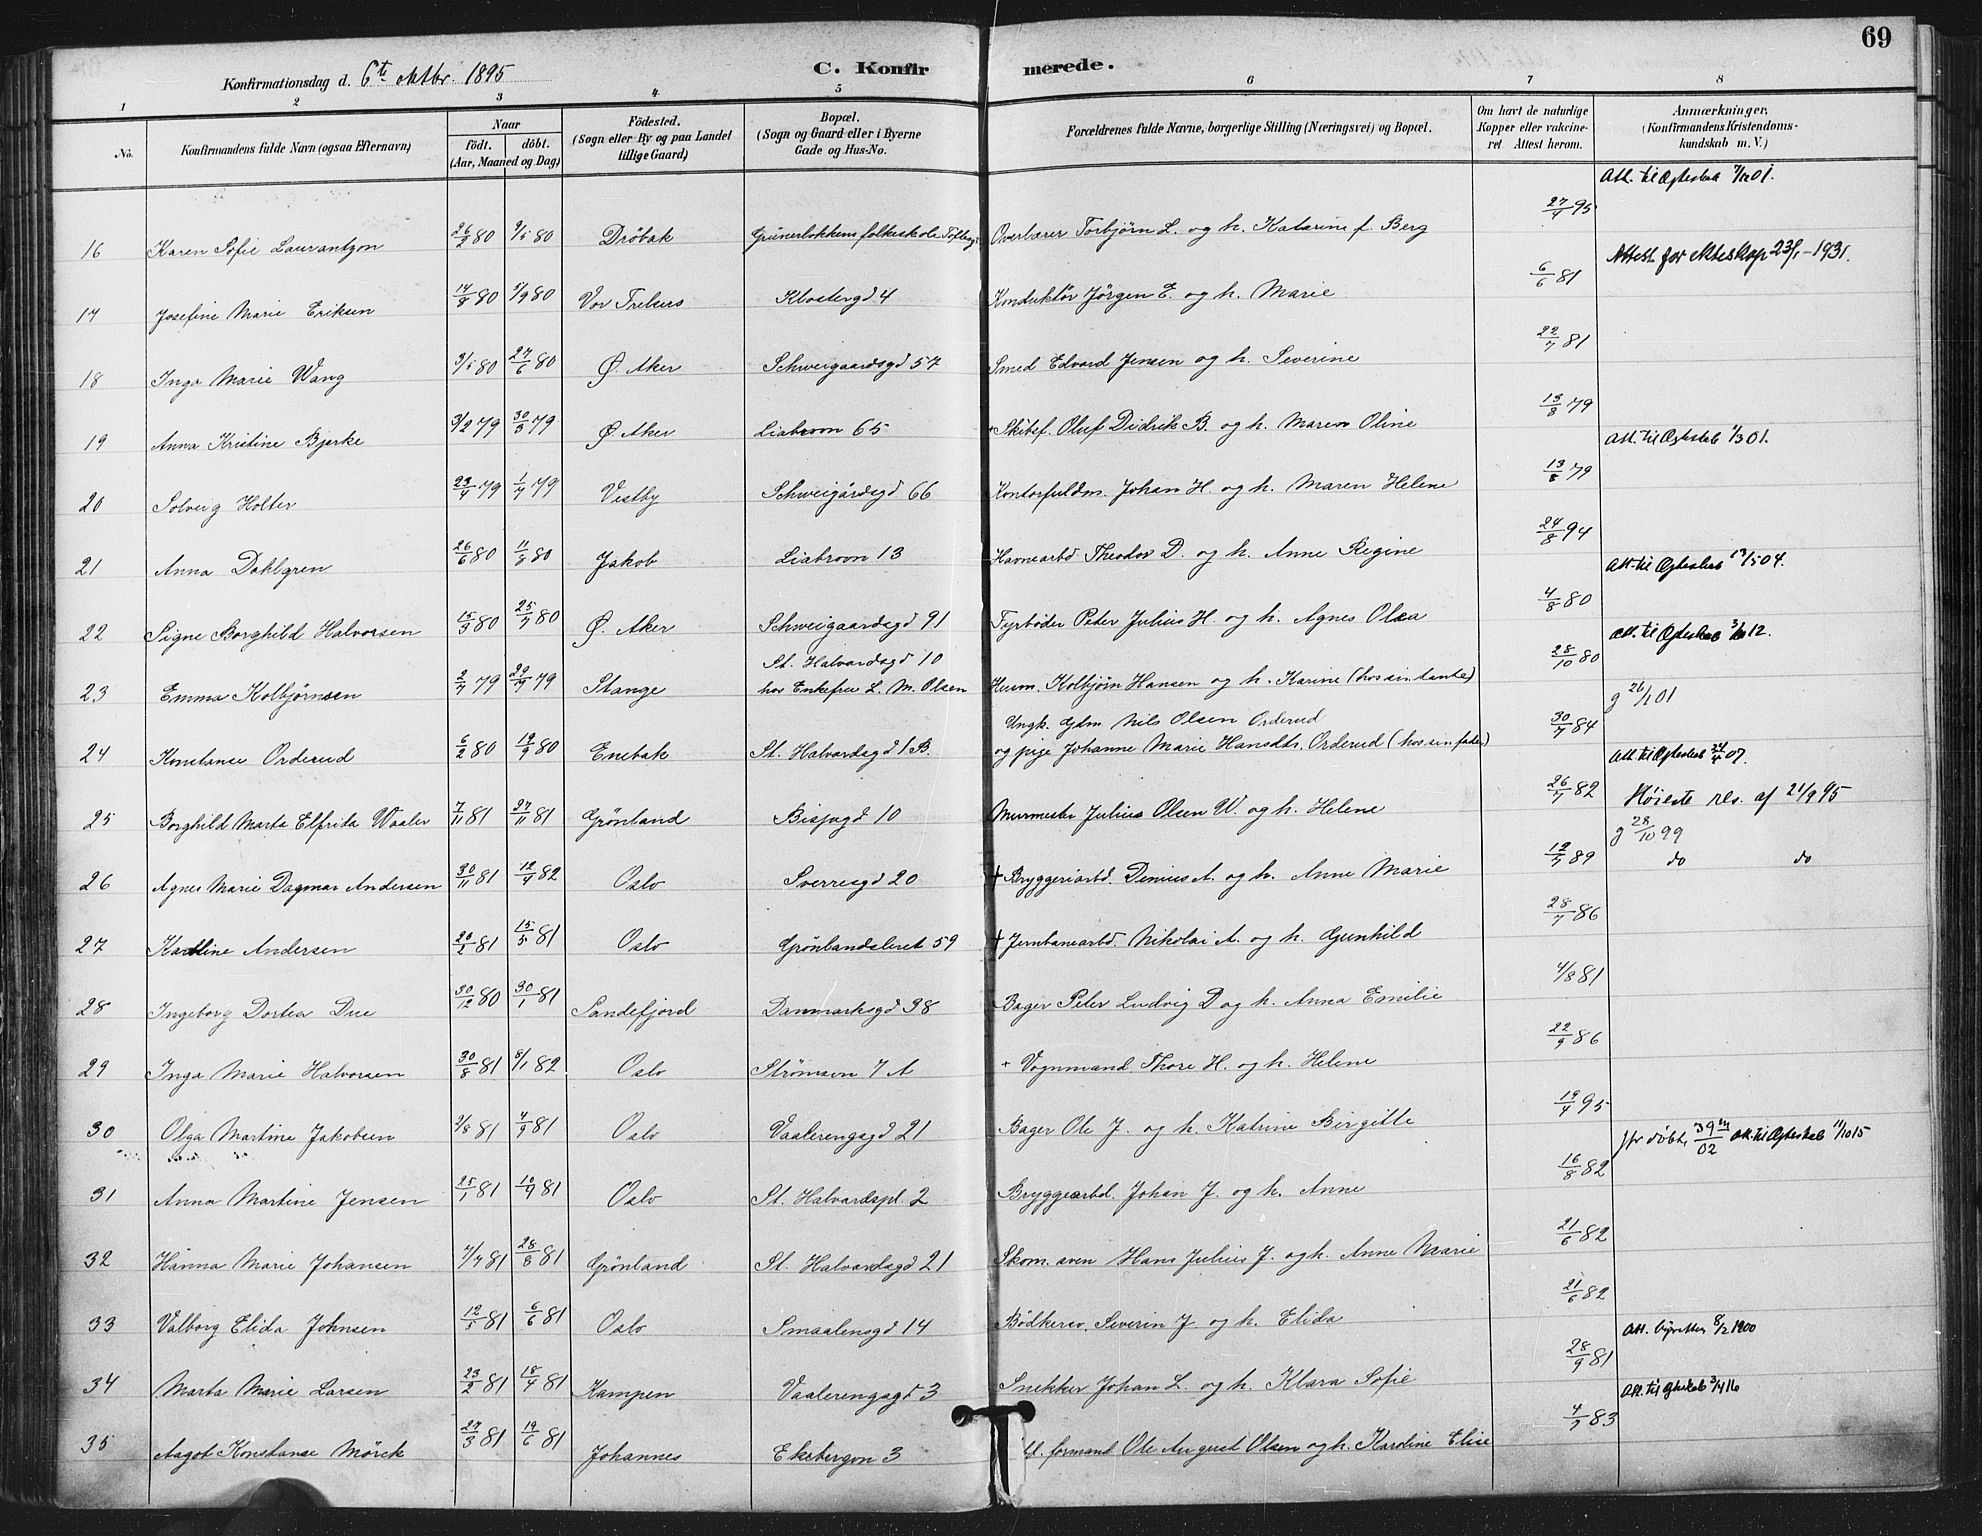 69
Konfirmationsdag d. 6te oktbr. 1895
C. Konfirmerede.
1 2 3 4 5 6 7 8
No.
Konfirmandens fulde Navn (ogsaa Efternavn)
Naar
födt. döbt.
(Aar, Maaned og Dag)
Födested.
(Sogn eller By og paa Landet
tillige Gaard)
Bopæl.
(Sogn og Gaard eller i Byerne
Gade og Hus-No.
Forældrenes fulde Navne, borgerlige Stilling (Næringsvei) og Bopæl.
Om havt de naturlige
Kopper eller vakcine-
ret Attest herom.
Anmærkninger.
(Konfirmandens Kristendoms-
kundskab m. V.)
Att. til Ægteskab 7/12 01.
16 Karen Sofie Laurantzon 26/2 80 9/5 80 Dröbak Grünerløkkens folkeskole Overlærer Torbjörn L. og h. Katarine f. Berg 27/4 95
Attest for ekteskap 23/1-1931.
17 Josefine Marie Eriksen 14/8 80 80 Vor Frelsers Klostergd 4 Konduktör Jörgen E. og h. Marie 6/6 81
18 Inga Marie Wang 3/5 80 27/6 80 Ø. Aker Schweigaardsgd 57 Smed Edvard Jensen og h. Severine 22/7 81
19 Anna Kristine Bjerke 3/2 79 30/3 79 Ø. Aker Liabroen 65 + Skibsf. Oluf Didrik B. og h. Maren Oline 13/8 79
Att. til Ægteskab 1/3 01.
20 Solveig Holter 23/4 79 1/7 79 Vestby Schweigårdsgd 66 Kontorfuldm. Johan H. og h. Maren Helene 13/8 79
21 Anna Dahlgren 26/6 80 11/8 80 Jakob Liabroen 13 Havnearbd Theodor D. og h. Anne Regine 24/8 94
Att. til Ægteskab 13/5 04.
22 Signe Borghild Halvorsen 15/3 80 25/7 80 Ø. Aker Schweigaardsgd 91 Fyrböder Peter Julius H. og h. Agnes Olea 4/8 80
Att. til Ægteskab 12.
23 Emma Kolbjørnsen 2/7 79 79 Stange St. Halvardsgd 10
hos Enkefru L. M. Olsen Husm. Kolbjørn Hansen og h. Karine (hos sin tante) 28/10 80
g 26/1 01
24 Konstanse Orderud 6/2 80 19/9 80 Enebak St. Halvardsgd 1 B. Ungk. Gdm Nils Olsen Orderud
og pige Johanne Marie Hansdtr. Orderud (hos sin fader) 30/7 84
Att. til Ægteskab 24/4 07.
25 Borghild Marta Elfrida Waaler 7/11 81 27/11 81 Grönland Bispgd 10 Murmester Julius Olsen W. og h. Helene 26/7 82 Höieste res. af 21/9 95
g 28/10 99
26 Agnes Marie Dagmar Andersen 30/11 81 12/4 82 Oslo Sverresgd 20 + Bryggeriarbd. Denius A. og h. Anne Marie 12/7 89 do do
27 Karoline Andersen 20/2 81 15/5 81 Oslo Grönlandsleret 59 + Jernbanearbd. Nikolai A. og h. Gunhild 28/7 86
28 Ingeborg Dortea Due 30/12 80 30/1 81 Sandefjord Danmarksgd 38 Bager Peter Ludvig D og h. Anna Emilie 4/8 81
29 Inga Marie Halvorsen 30/8 81 8/1 82 Oslo Strömsvn 7 A + Vognmand Thore H. og h. Helene 22/9 86
30 Olga Martine Jakobsen 2/8 81 4/9 81 Oslo Vaalerengsgd 21 Bager Ole J. og h. Katrine Birgitte 19/4 95
jfr döbt, 39/02 Att. til Ægteskab 11/10 15
31 Anna Martine Jensen 25/1 81 10/4 81 Oslo St. Halvardspl. 2 Bryggearbd. Johan J. og h. Anne 16/8 82
32 Hanna Marie Johansen 7/7 81 28/8 81 Grönland St. Halvardsgd 21 Skom. sven Hans Julius J. og h. Anne Marie 21/6 82
33 Valborg Elida Johnsen 12/5 81 6/6 81 Oslo Smaalensgd 14 Bödkersv. Severin J. og h. Elida 21/6 82
8/2 1900
34 Marta Marie Larsen 23/2 81 18/4 81 Kampen Vaalerengsgd 3 Snekker Johan L. og h. Klara Sofie 28/9 81
Att. til Ægteskab 3/4 16
35 Aagot Konstanse Mörck 27/3 81 19/6 81 Johannes Ekebergvn 3 formand Ole August Olsen og h. Karoline Elise 83